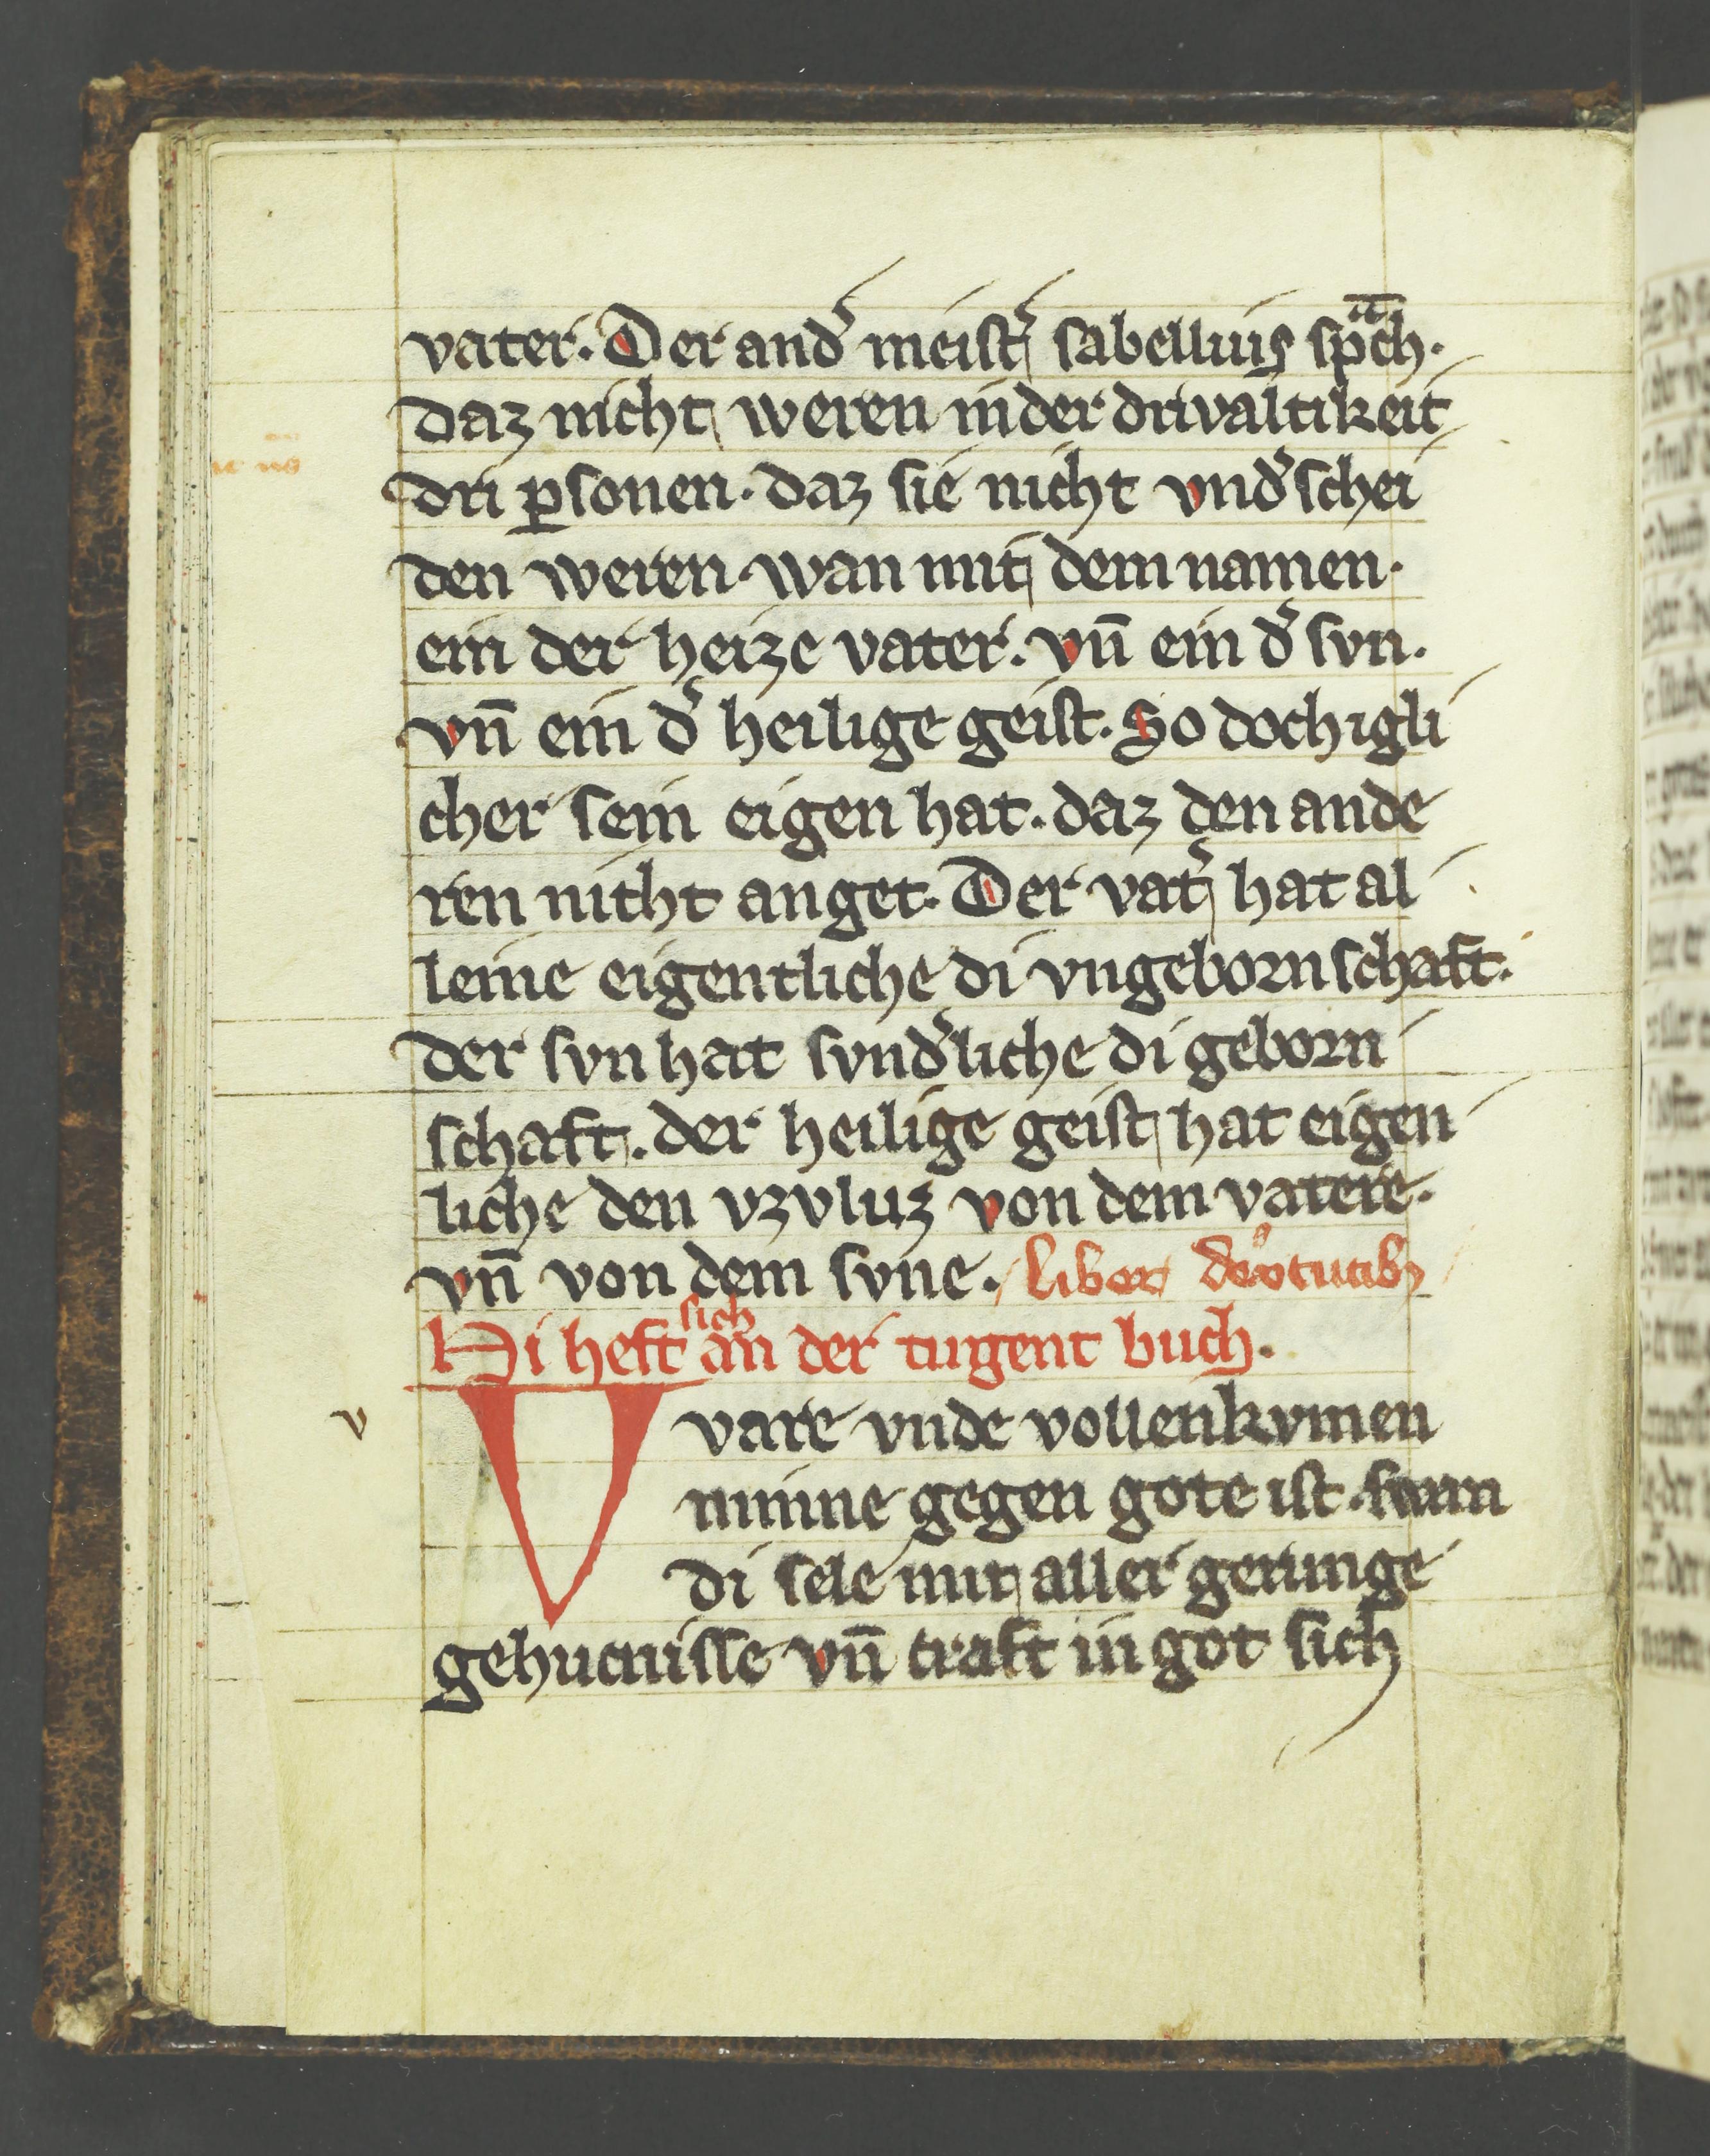 vater. Der andˀ meistˀ sabellius sp̄ᵃch.
daz nicht weren in der drivaltikeit
dri ꝑsonen. daz sie nicht vndˀschei
den weren. wan mit dem namen.
ein der heize vater. vn̄ ein dˀ svn.
vn̄ ein dˀ heilige geist. So doch igli
cher sein eigen hat. daz den ande
ren nicht anget. Der vatˀ hat al
leine eigentliche di vngebornschaft.
der svn hat svndˀliche di geborn
schaft. der heilige geist hat eigen
liche den vzvluz von dem vatere.
vn̄ von dem svne. Liber de
Hi heft sich an der tugent buch.
v
Vvare vnde vollenkvmen
minne gegen gote ist. swan
di sele mit aller gerunge
gehucnisse vn̄ craft in got sich